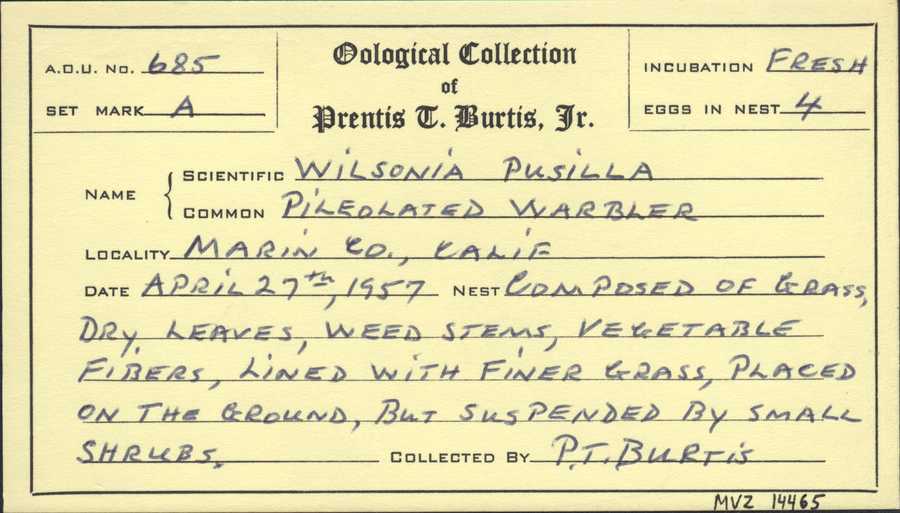 A.O.U. No. 685
SET MARK A
Oological Collection
of
Prentis T. Burtis, Jr.
INCUBATION FRESH
EGGS IN NEST 4
NAME
SCIENTIFIC WILSONIA PUSILLA
COMMON PILEOLATED WARBLER
LOCALITY MARIN CO., CALIF
DATE APRIL 27th, 1957 NEST COMPOSED OF GRASS,
DRY, LEAVES, WEED STEMS, VEGETABLE
FIBERS, LINED WITH FINER GRASS, PLACED
ON THE GROUND, BUT SUSPENDED BY SMALL
SHRUBS. COLLECTED BY P.T. BURTIS
MVZ 14465